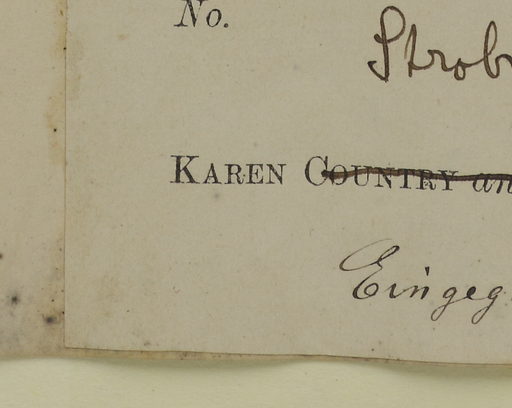 No.
Strob
KAREN COUNTRY an
Eingeg